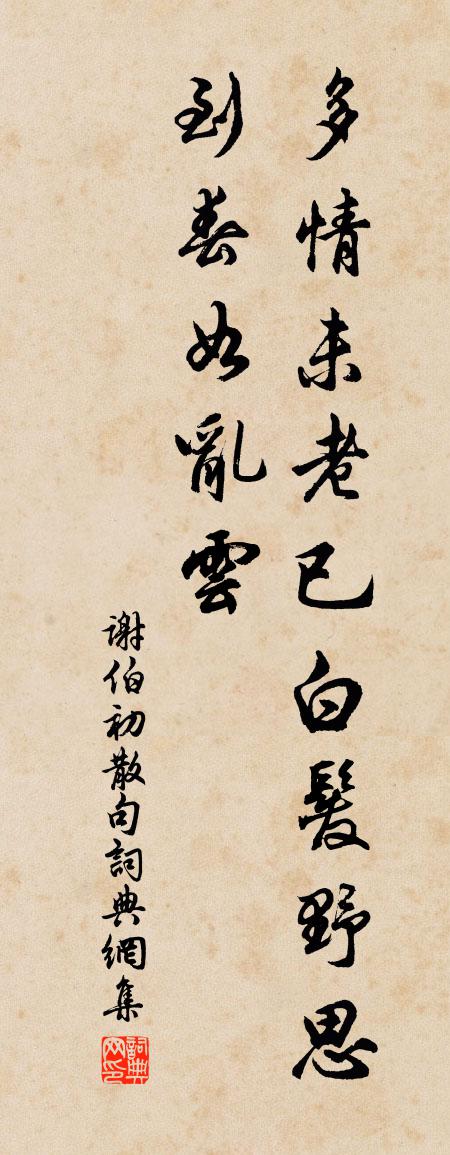 多情未老已白髮野思
到春如亂雲
谢伯初散句詞典網集
詞典
网印